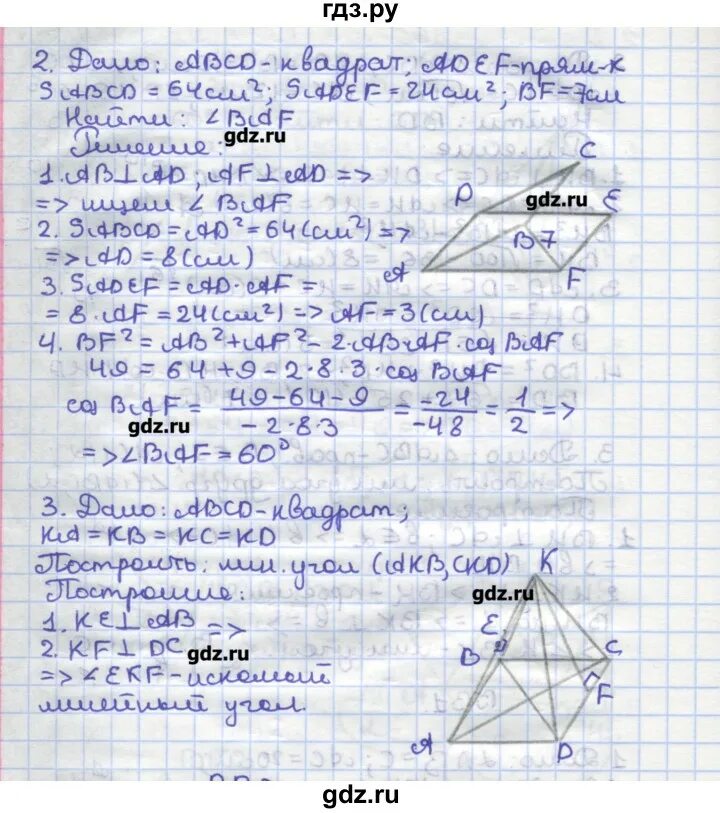 гдз.ру
2. Дано: ABCD-квадрат; ADEF-прям-к
SABCD = 64см²; SADEF = 24см²; BF = 7см
Найти: ∠BAF
gdz.ru
Решение:
1. AB⊥AD; AF⊥AD =>
=> ищем ∠ BAF
2. SABCD = AD² = 64(см²) =>
=> AD = 8(см)
3. SADEF = AD · AF =
= 8 · AF = 24(см²) => AF = 3(см)
C
D gdz.ru E
B 7
A F
4. BF² = AB² + AF² - 2·AB·AF · cos BAF
49 = 64 + 9 - 2·8·3 · cos BAF
cos BAF = 49-64-9 / -2·8·3 = -24 / -48 = 1 / 2 =>
gdz.ru
=> ∠BAF = 60°
3. Дано: ABCD-квадрат;
KA = KB = KC = KD
Построить: лин. угол (AKB, CKD)
Построение:
1. KE⊥AB =>
2. KF⊥DC
gdz.ru
=> ∠EKF - искомый
линейный угол.
K
gdz.ru
E
B C
F
A D
gdz.ru